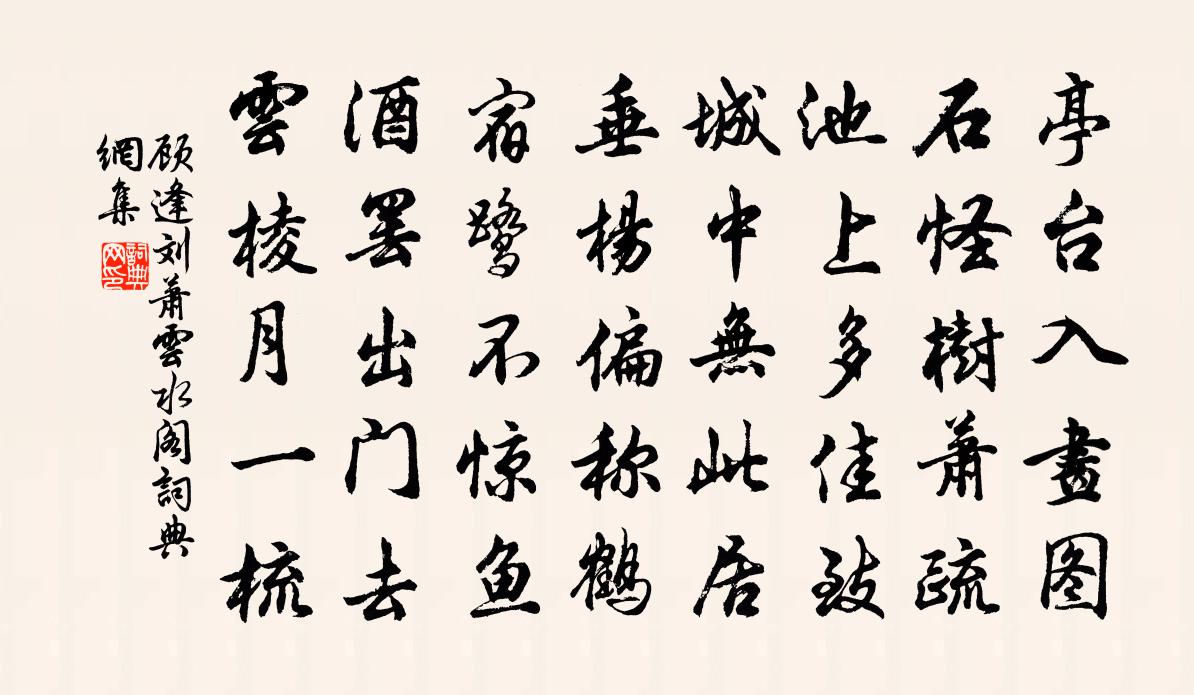 亭台入畫图
石怪樹萧疏
池上多佳致
城中無此居
垂楊偏称鶴
宿鹭不惊鱼
酒罢出门去
雲棱月一梳
顾逢刘萧雲水阁詞典
網集
詞典
网印